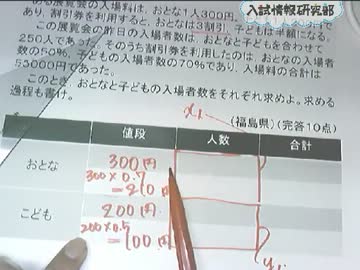 ある展覧会の入場料は、おとな1人300円、
入試情報研究部
あり、割引券を利用すると、おとなは3割引、子どもは半額になる。
この展覧会の昨日の入場者数は、おとなと子どもを合わせて
250人であった。そのうち割引券を利用したのは、おとなの入場者
数の50%、子どもの入場者数の70%であり、入場料の合計は
55000円であった。
このとき、おとなと子どもの入場者数をそれぞれ求めよ。求める
過程も書け。
(福島県) (完答10点)
値段 人数 合計
おとな 300円
300×0.7
=210円
こども 200円
200×0.5
=100円